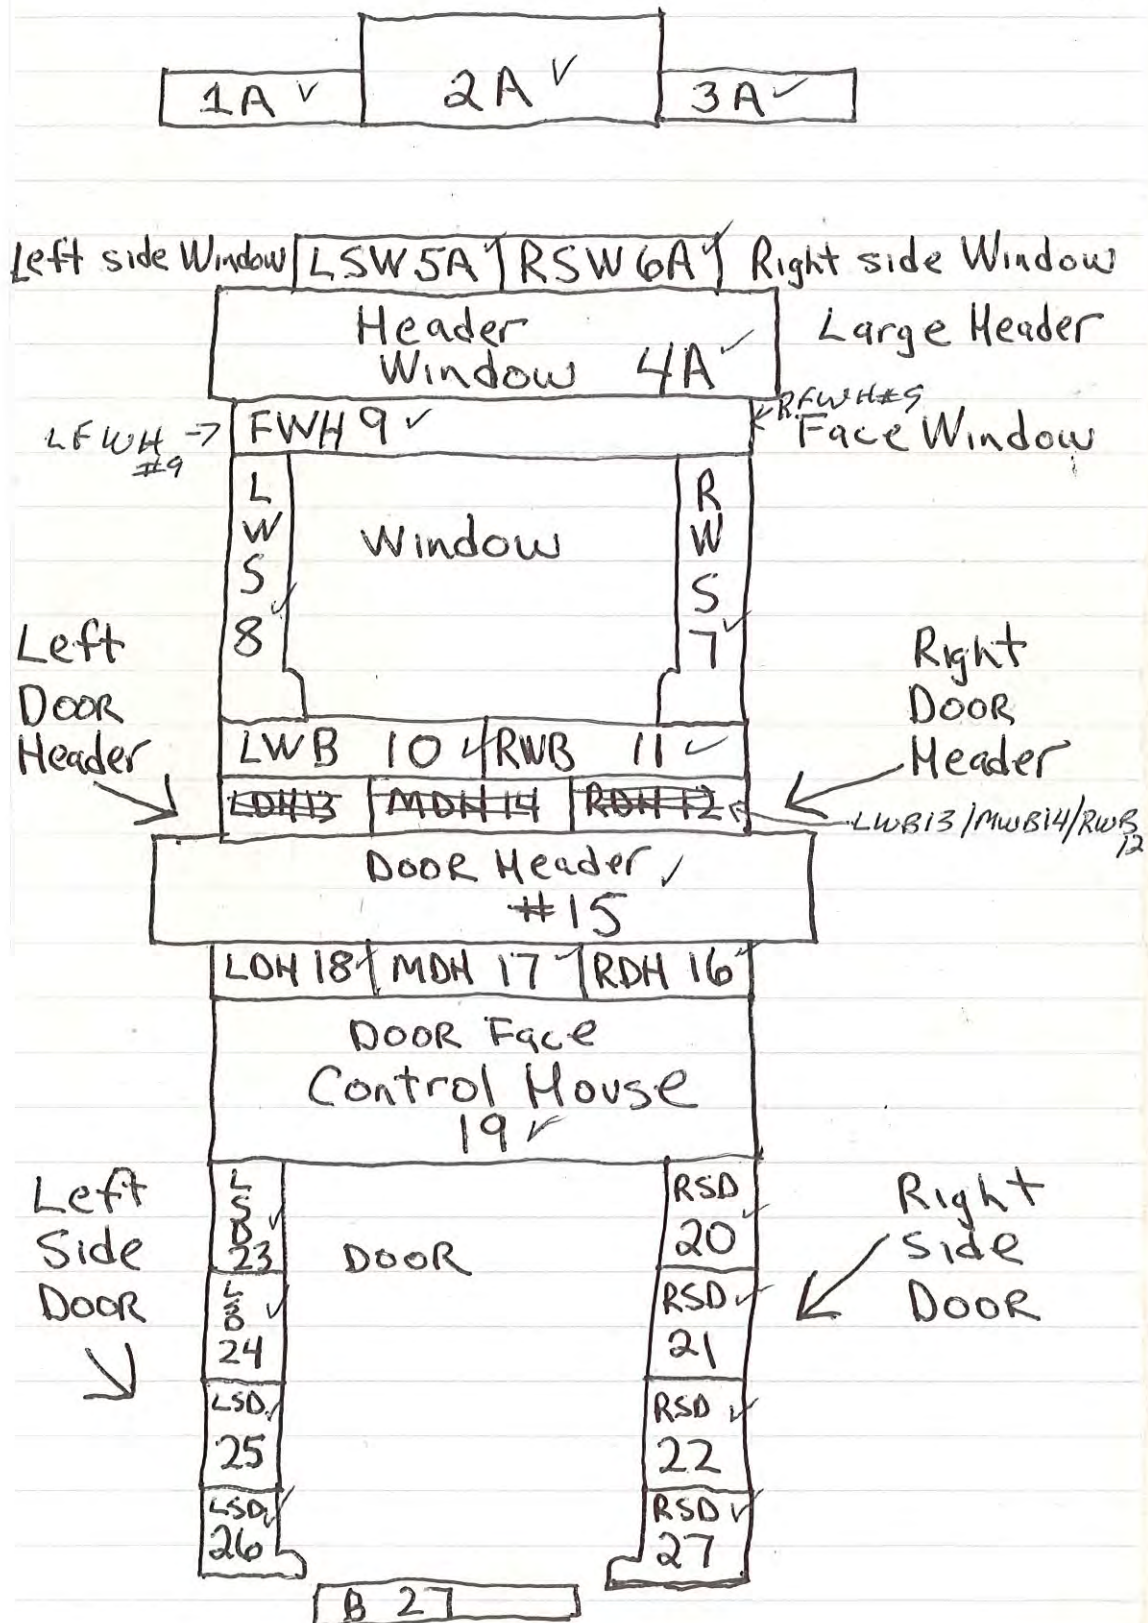 1A ✓ 2A ✓ 3A ✓
Left side Window LSW 5A ✓ RSW 6A ✓ Right side Window
Header Window 4A ✓ Large Header
LFWH #9 → FWH 9 ✓ ← RFWH #9
Face Window
L W S 8 ✓
Window
R W S 7 ✓
Left Door Header
Right Door Header
LWB 10 ✓ RWB 11 ✓
LDH 13 MDH 14 RDH 12
LWB13/MWB14/RWB12
Door Header ✓
#15
LDH 18 ✓ MDH 17 ✓ RDH 16 ✓
Door Face
Control House
19 ✓
Left Side Door
Right Side Door
LSD 23 ✓
Door
RSD 20 ✓
LSD 24 ✓
RSD ✓ 21
LSD ✓ 25
RSD ✓ 22
LSD ✓ 26
RSD ✓ 27
B 27